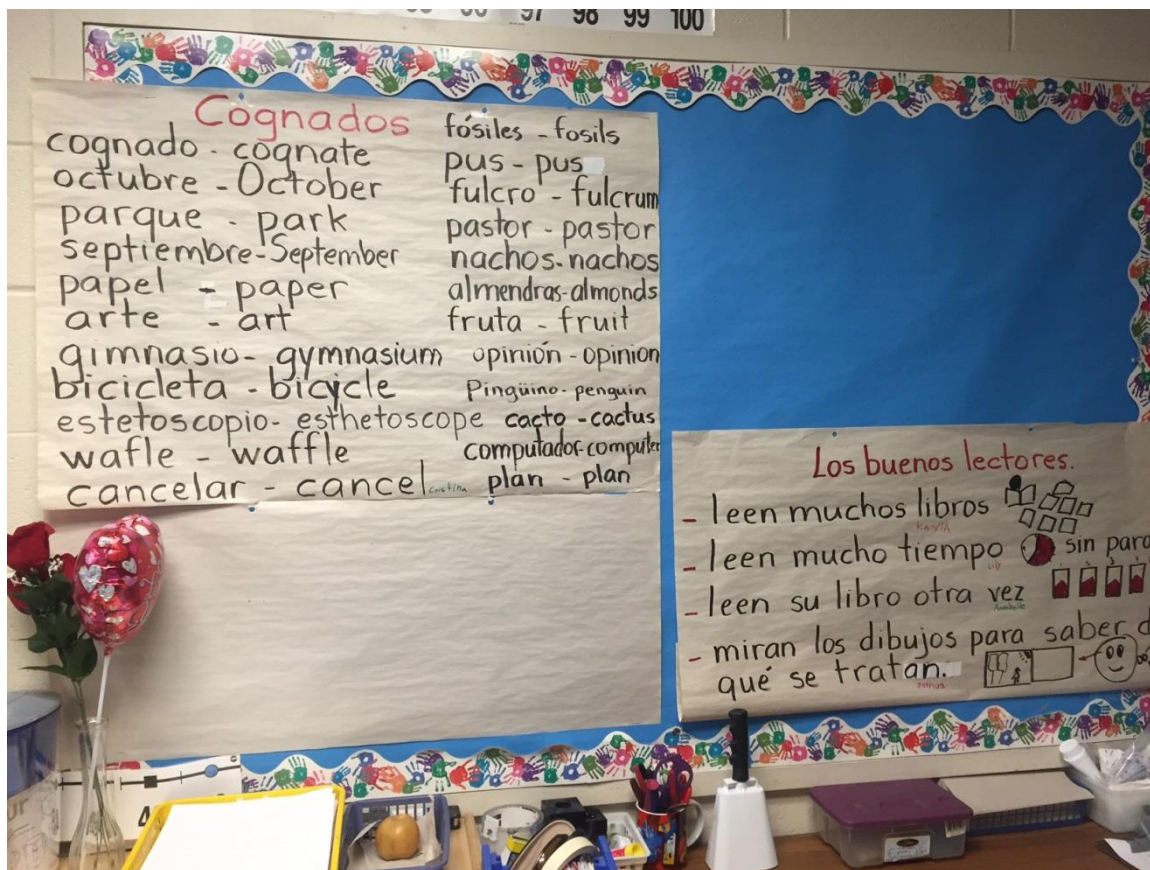 97 98 99 100
Cognados
cognado - cognate
octubre - October
parque - park
septiembre - September
papel - paper
arte - art
gimnasio - gymnasium
bicicleta - bicycle
estetoscopio - esthetoscope
wafle - waffle
cancelar - cancel
Cristina
fósiles - fosils
pus - pus
fulcro - fulcrum
pastor - pastor
nachos - nachos
almendras - almonds
fruta - fruit
opinión - opinion
Pingüino - penguin
cacto - cactus
computador - computer
plan - plan
Los buenos lectores.
- leen muchos libros
- leen mucho tiempo sin para
Lily
- leen su libro otra vez
Annabelle
- miran los dibujos para saber d
qué se tratan.
Joshua